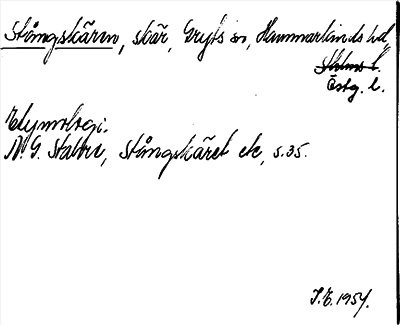 Stångskären, skär, Gryts sn, Hammarkinds hd,
Östg. l.
Etymologi:
N. G. Stahre, Stångskäret etc, s. 35.
1954.